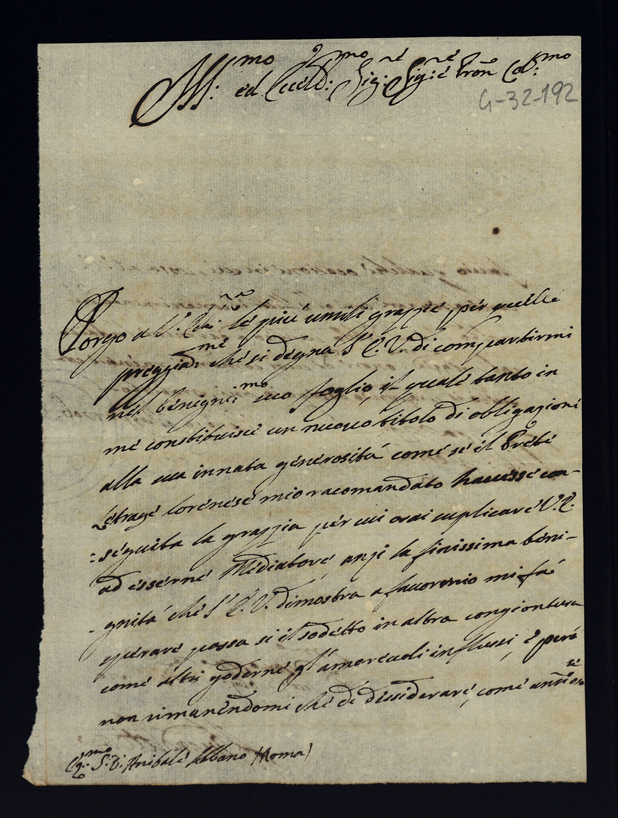 Ill:mo
ed Eccll: Sig:re Sig:re e Pron Col:mo
G-32-192
Porgo a V. Ecc:za le più umili grazie per quelle
preggiad:me che si degna l'E.V. di compartirmi
nel benignis:mo suo foglio, il quale tanto in
me constituisce un nuovo titolo di obligazione
alla sua innata generosità come se il Prete
Lorenese mio racomandato havesse con-
:seguita la grazzia per cui osai suplicare V.E.
ad esserne Mediatore anzi la finissima beni-
-gnità che l'E.V. dimostra a favor mio mi fà
sperare possa si il sodetto in altra congiontura
come altri goderne gl'amorevoli influssi, e però
non rimanendomi che di desiderare, come
S. D. Anibale Albano (Roma)